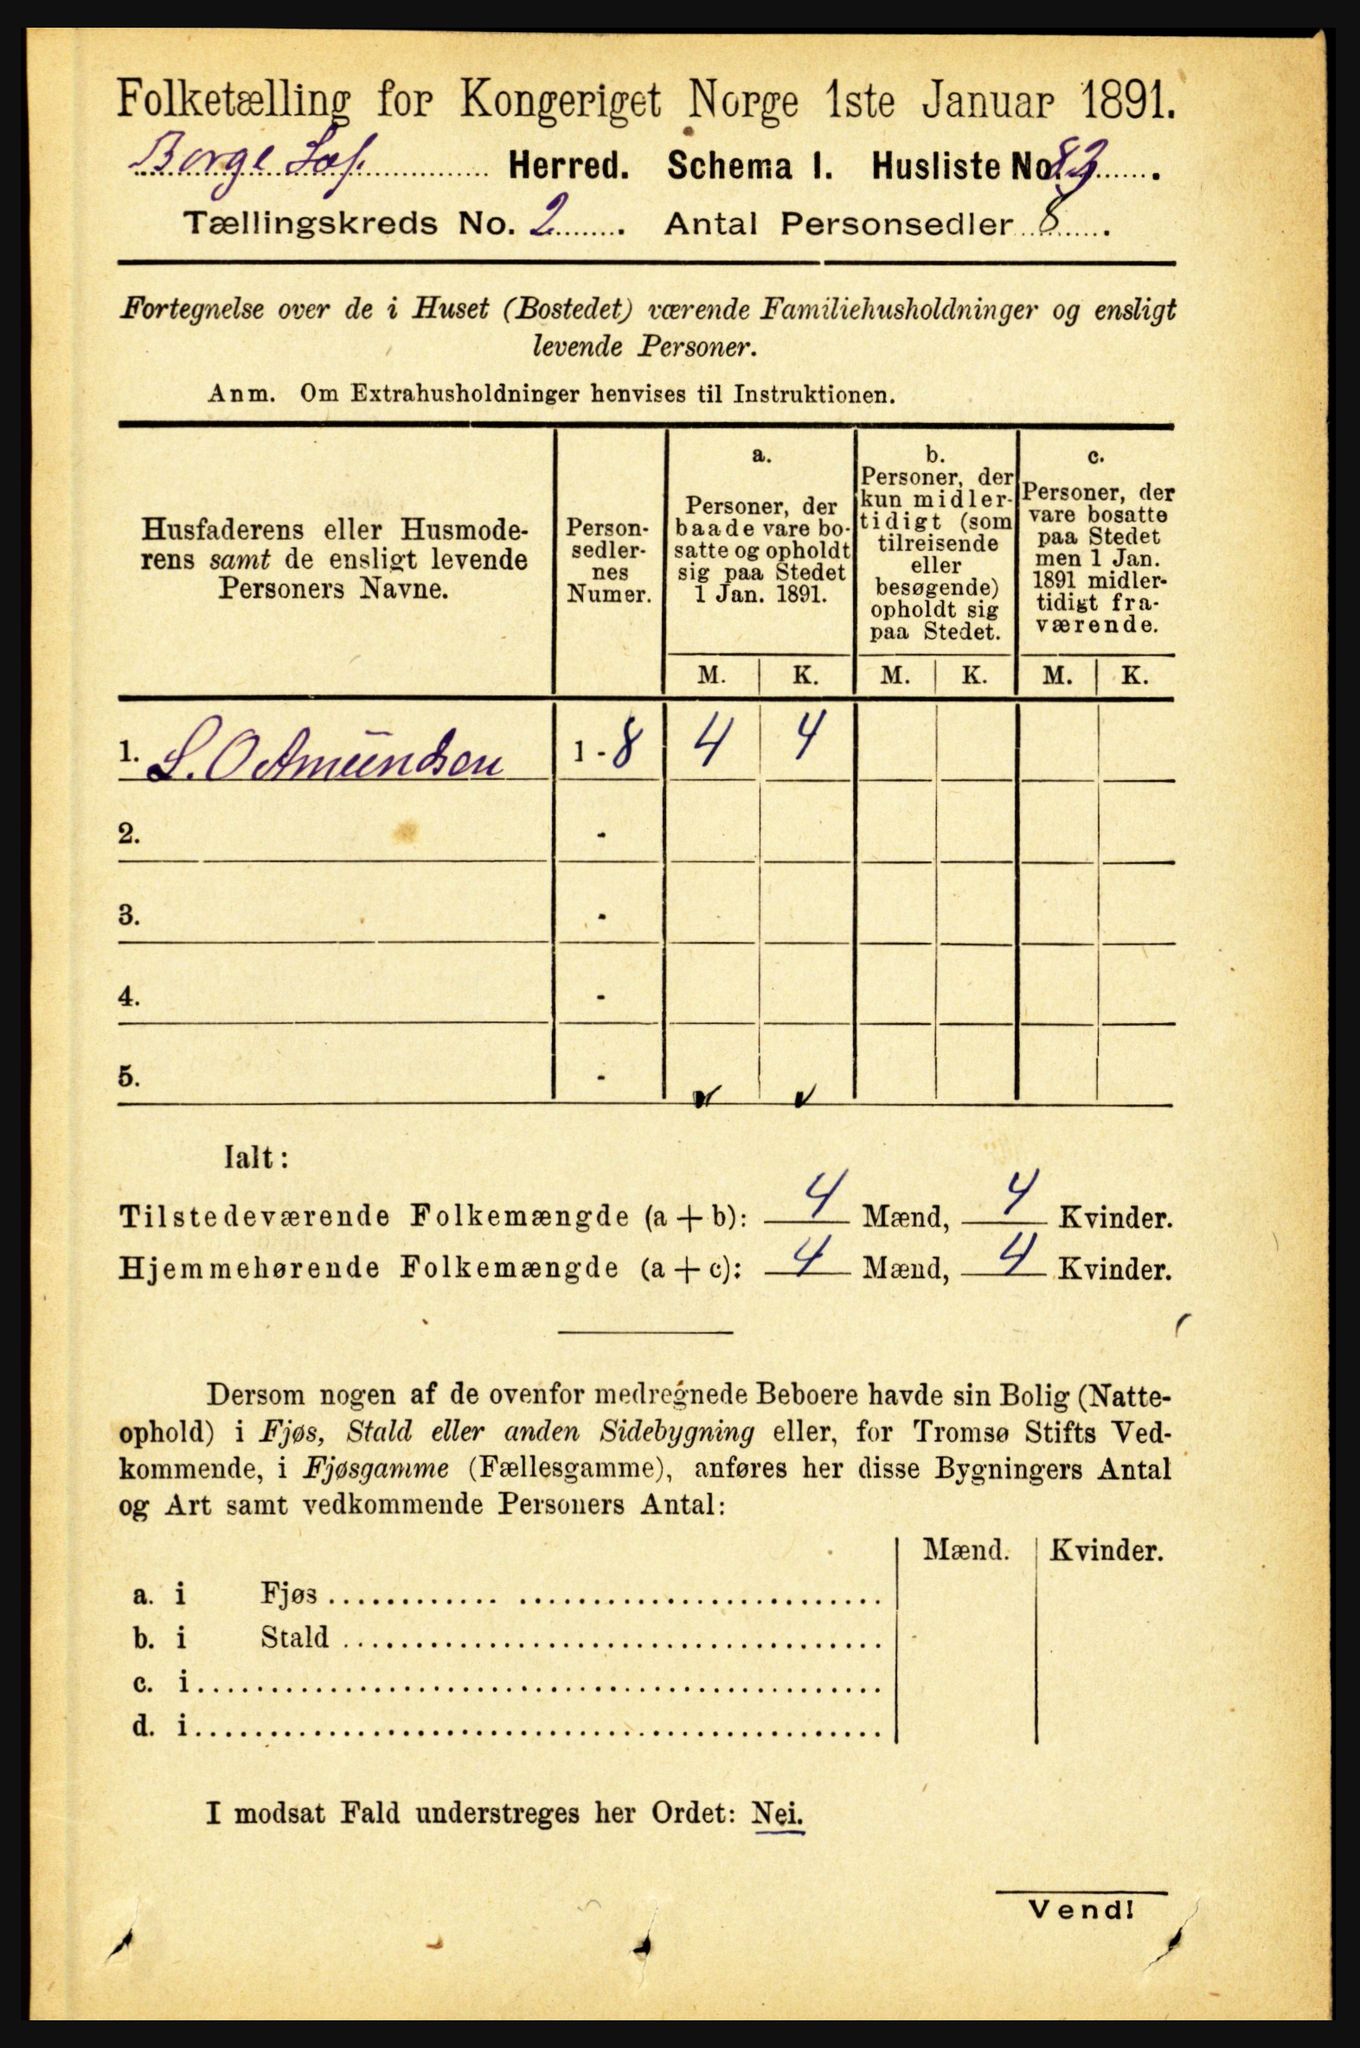 Folketælling for Kongeriget Norge 1ste Januar 1891.
Borge Lof. Herred. Schema I. Husliste No. 83.
Tællingskreds No. 2. Antal Personsedler 8.
Fortegnelse over de i Huset (Bostedet) værende Familiehusholdninger og ensligt
levende Personer.
Anm. Om Extrahusholdninger henvises til Instruktionen.
Husfaderens eller Husmode-
rens samt de ensligt levende
Personers Navne.
Person-
sedler-
nes
Numer.
a.
Personer, der
baade vare bo-
satte og opholdt
sig paa Stedet
1 Jan. 1891.
b.
Personer, der
kun midler-
tidigt (som
tilreisende
eller
besøgende)
opholdt sig
paa Stedet.
c.
Personer, der
vare bosatte
paa Stedet
men 1 Jan.
1891 midler-
tidigt fra-
værende.
M. K. M. K. M. K.
1. L. O Amundsen 1 - 8 4 4
2. -
3. -
4. -
5. -
Ialt:
Tilstedeværende Folkemængde (a + b): 4 Mænd, 4 Kvinder.
Hjemmehørende Folkemængde (a + c): 4 Mænd, 4 Kvinder.
Dersom nogen af de ovenfor medregnede Beboere havde sin Bolig (Natte-
ophold) i Fjøs, Stald eller anden Sidebygning eller, for Tromsø Stifts Ved-
kommende, i Fjøsgamme (Fællesgamme), anføres her disse Bygningers Antal
og Art samt vedkommende Personers Antal:
Mænd. Kvinder.
a. i Fjøs
b. i Stald
c. i
d. i
I modsat Fald understreges her Ordet: Nei.
Vend!